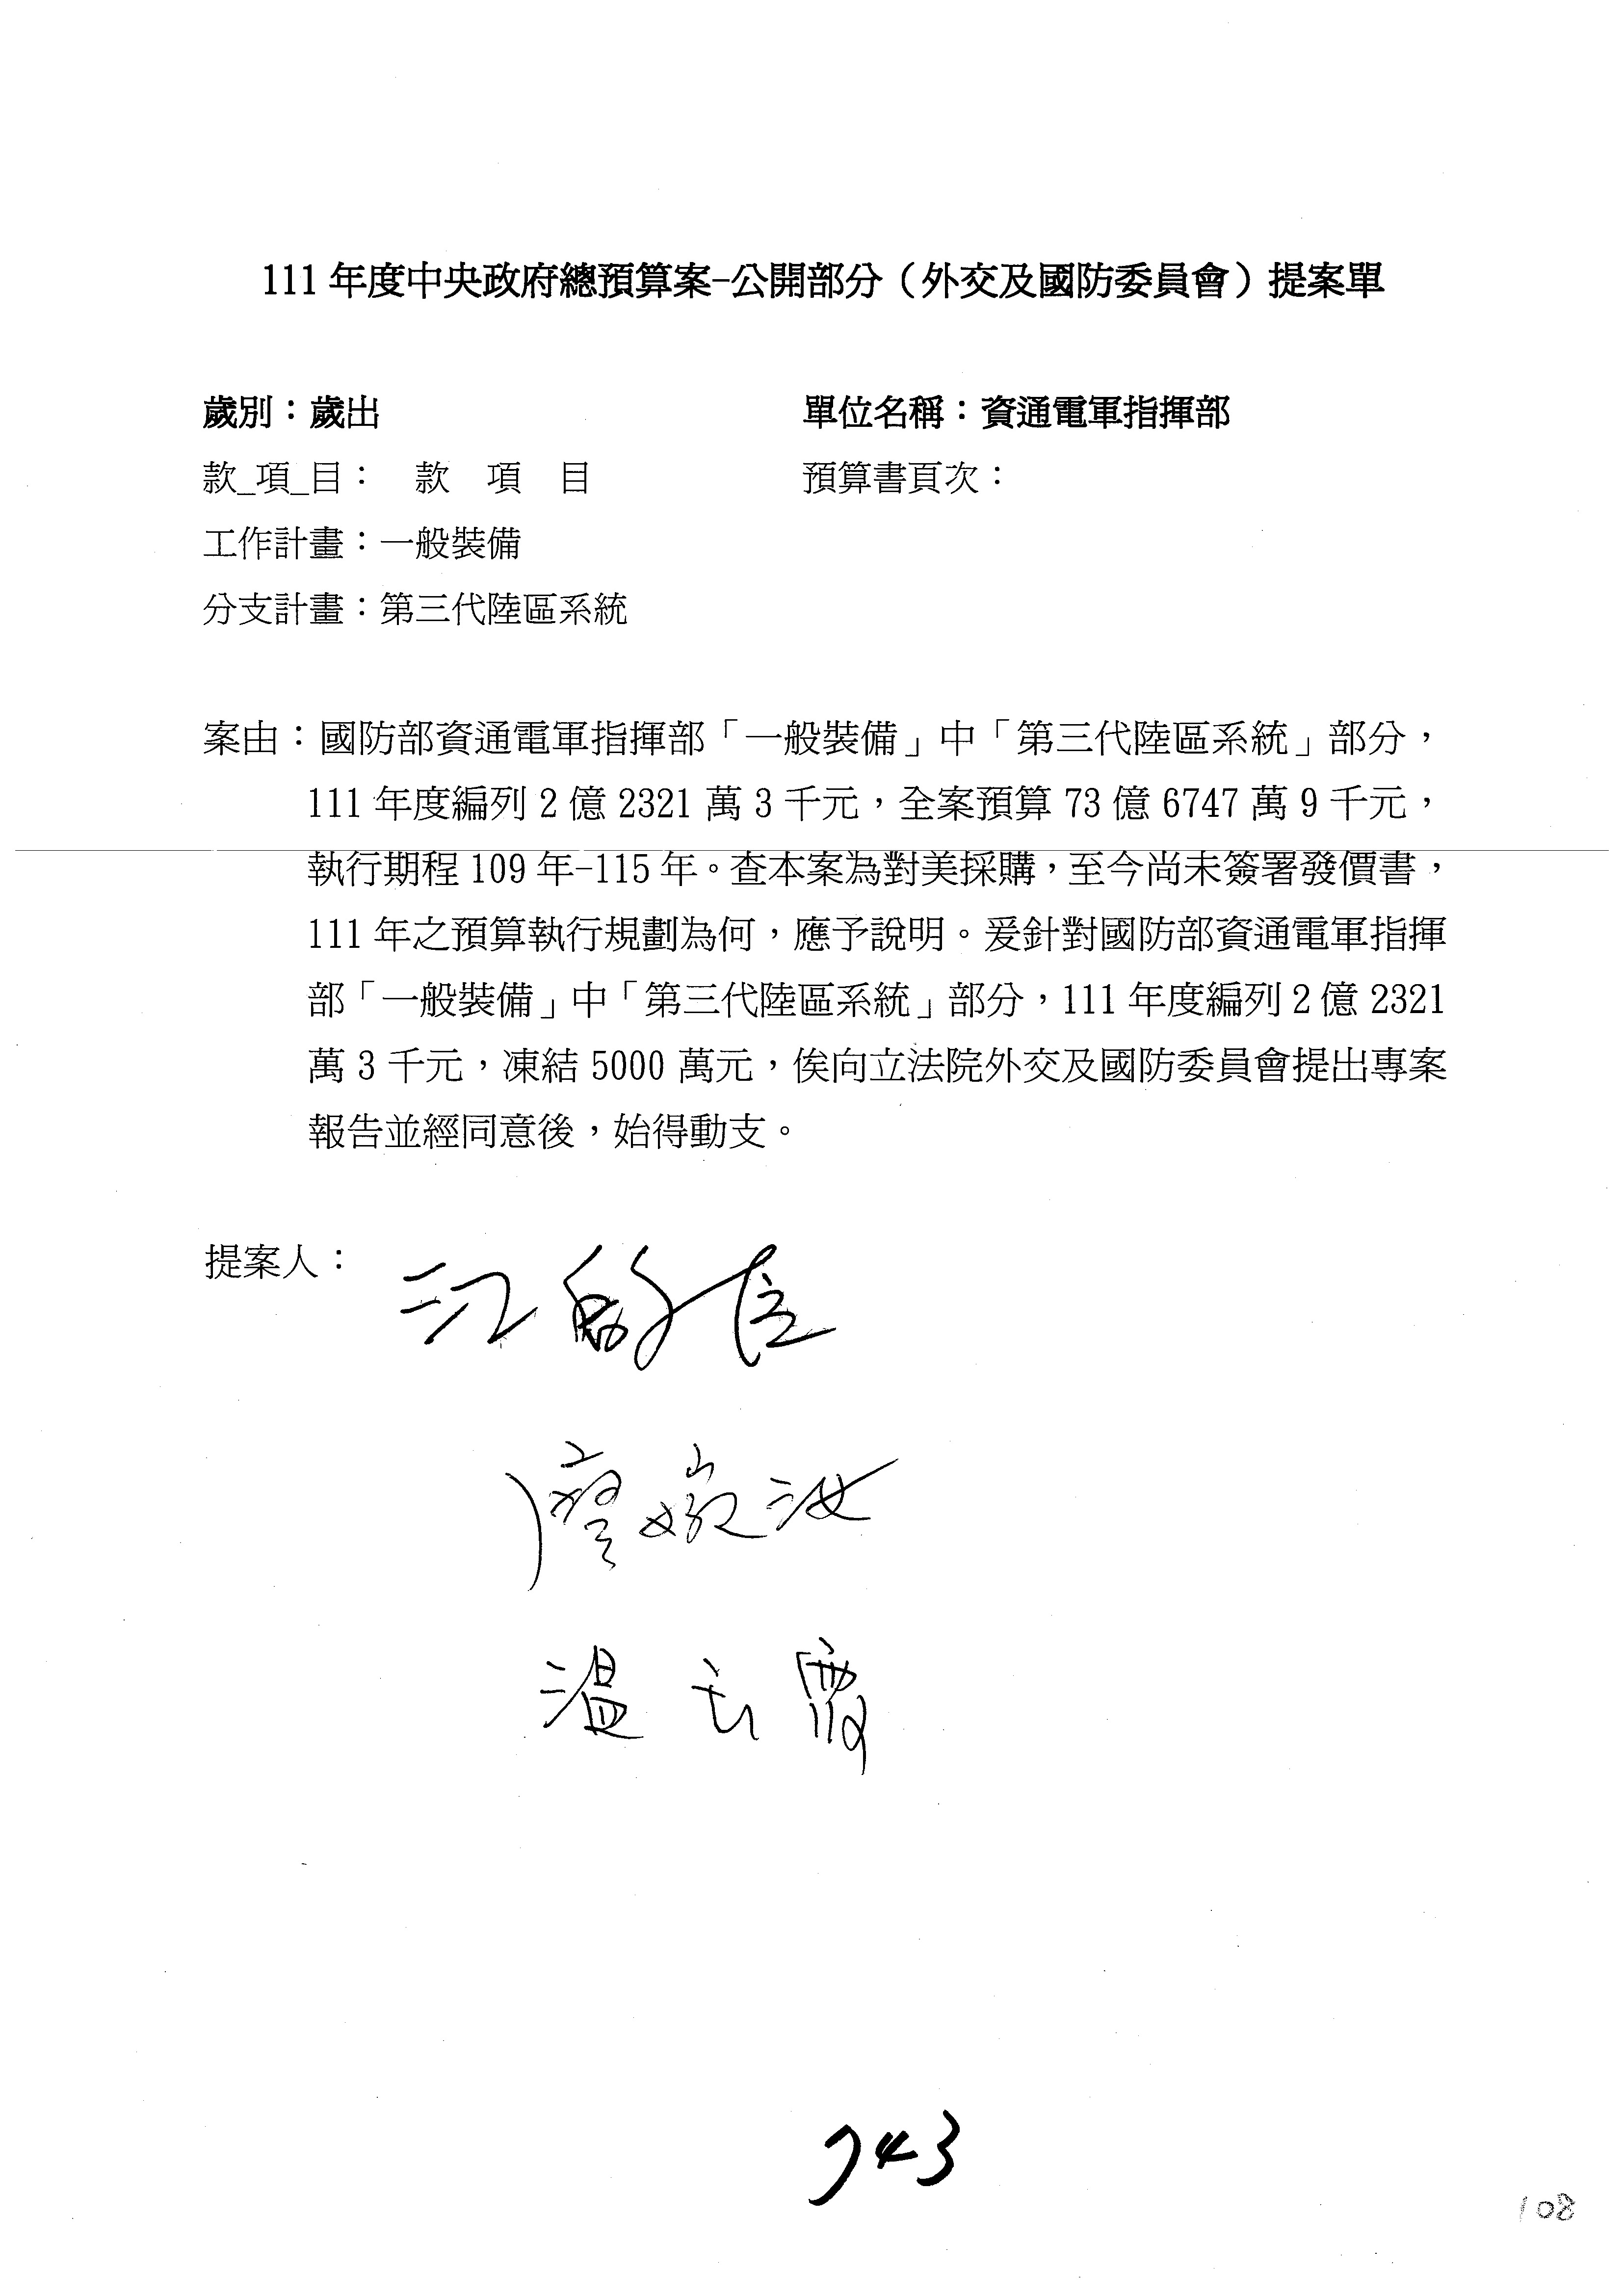 111 年度中央政府總預算案-公開部分（外交及國防委員會）提案單
歲別：歲出 單位名稱：資通電軍指揮部
款_項_目： 款 項 目 預算書頁次：
工作計畫：一般裝備
分支計畫：第三代陸區系統
案由：國防部資通電軍指揮部「一般裝備」中「第三代陸區系統」部分，
111 年度編列 2 億 2321 萬 3 千元，全案預算 73 億 6747 萬 9 千元，
執行期程 109 年-115 年。查本案為對美採購，至今尚未簽署發價書，
111 年之預算執行規劃為何，應予說明。爰針對國防部資通電軍指揮
部「一般裝備」中「第三代陸區系統」部分，111 年度編列 2 億 2321
萬 3 千元，凍結 5000 萬元，俟向立法院外交及國防委員會提出專案
報告並經同意後，始得動支。
提案人：
江啟臣
廖婉汝
溫玉霞
743
108